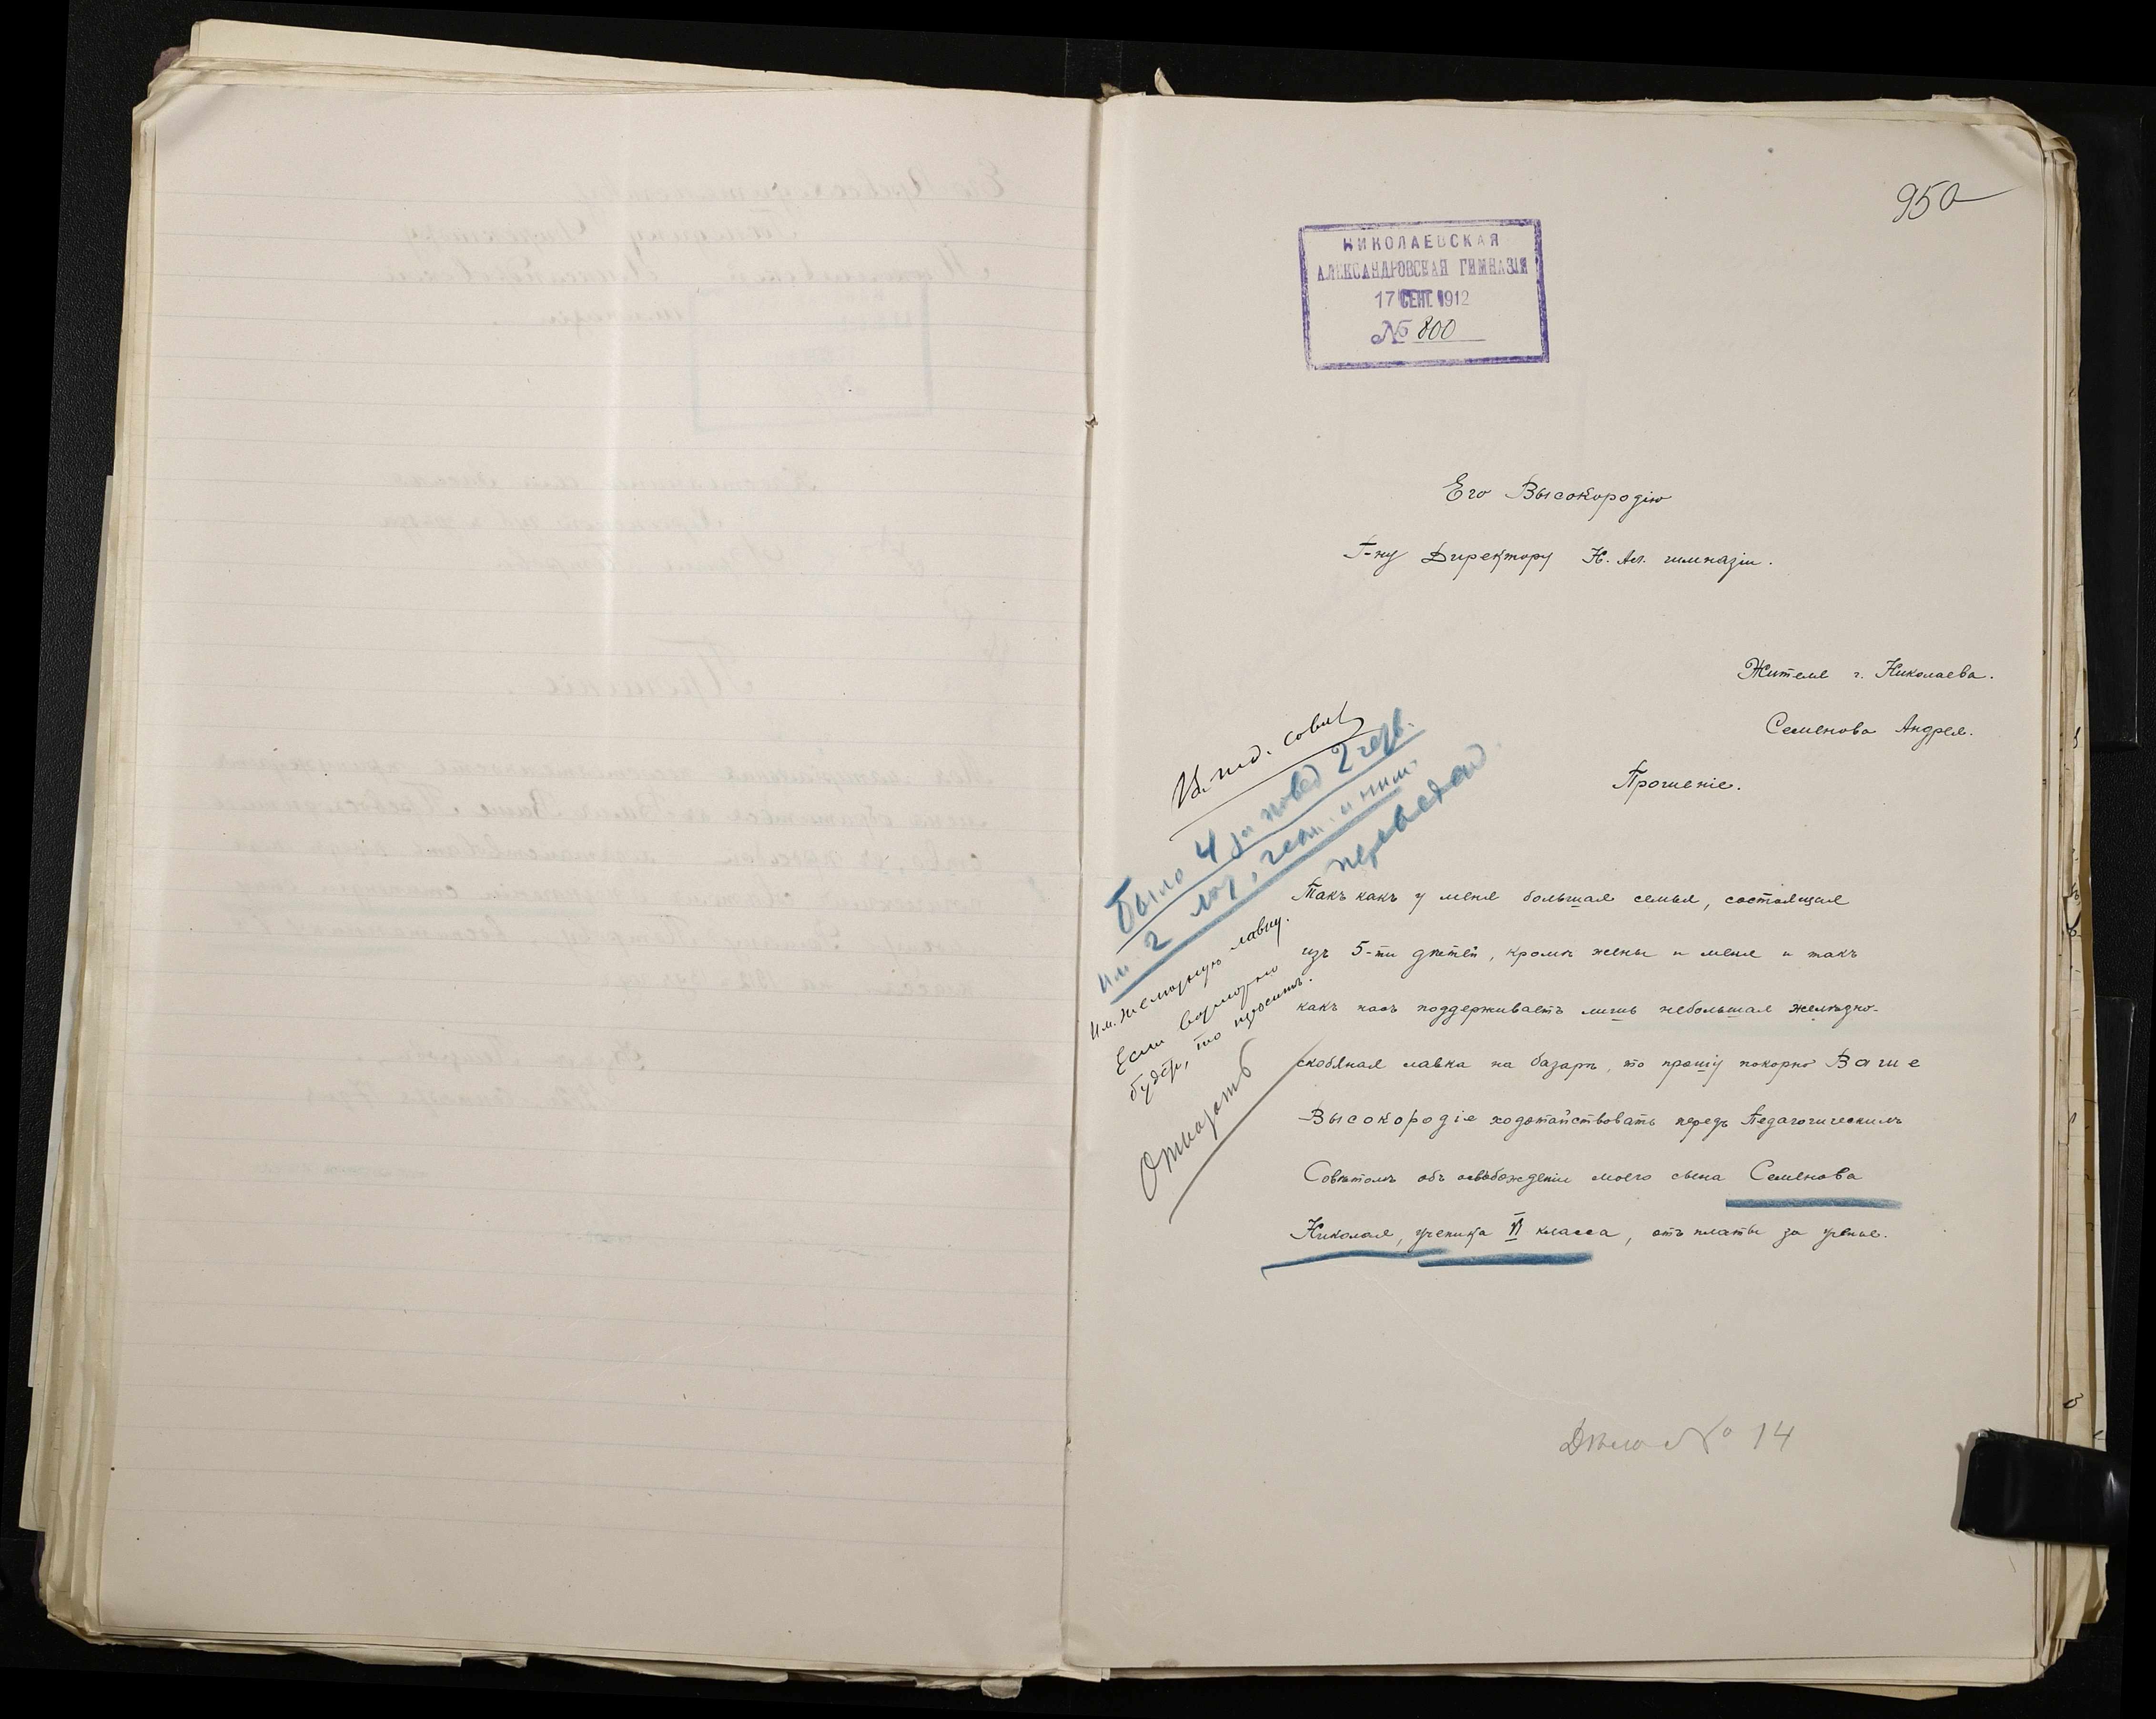 950
НИКОЛАЕВСКАЯ
АЛЕКСАНДРОВСКАЯ ГИМНАЗІЯ
17 СЕНТ. 1912
№ 800
Его Высокородію
Г-ну Директору Н. Ал. гимназіи.
Жителя г. Николаева.
Семенова Андрея.
Прошеніе.
Такъ какъ у меня большая семья, состоящая
изъ 5-ти дѣтей, кромѣ жены и меня и такъ
какъ насъ поддерживаетъ лишь небольшая желѣзно-
скобяная лавка на базарѣ, то прошу покорно Ваше
Высокородіе ходотайствовать передъ Педагогическимъ
Совѣтомъ объ освобожденіи моего сына Семенова
Николая, ученика VI класса, отъ платы за ученье.
было 4 за повед 2 четв.
им. 2
переведен
Им. лавку.
Если возможно
будет, то просить.
Отказать
Дѣло № 14